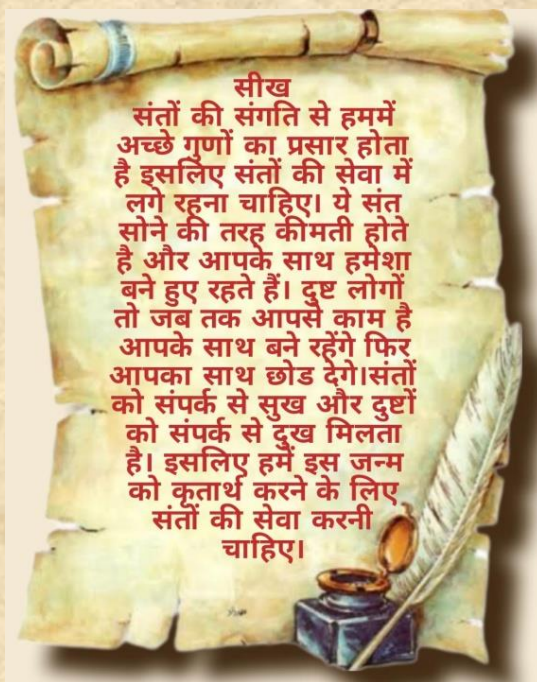 सीख
संतों की संगति से हममें
अच्छे गुणों का प्रसार होता
है इसलिए संतों की सेवा में
लगे रहना चाहिए। ये संत
सोने की तरह कीमती होते
है और आपके साथ हमेशा
बने हुए रहते हैं। दुष्ट लोगों
तो जब तक आपसे काम है
आपके साथ बने रहेंगे फिर
आपका साथ छोड देगे।संतों
को संपर्क से सुख और दुष्टों
को संपर्क से दुख मिलता
है। इसलिए हमें इस जन्म
को कृतार्थ करने के लिए
संतों की सेवा करनी
चाहिए।